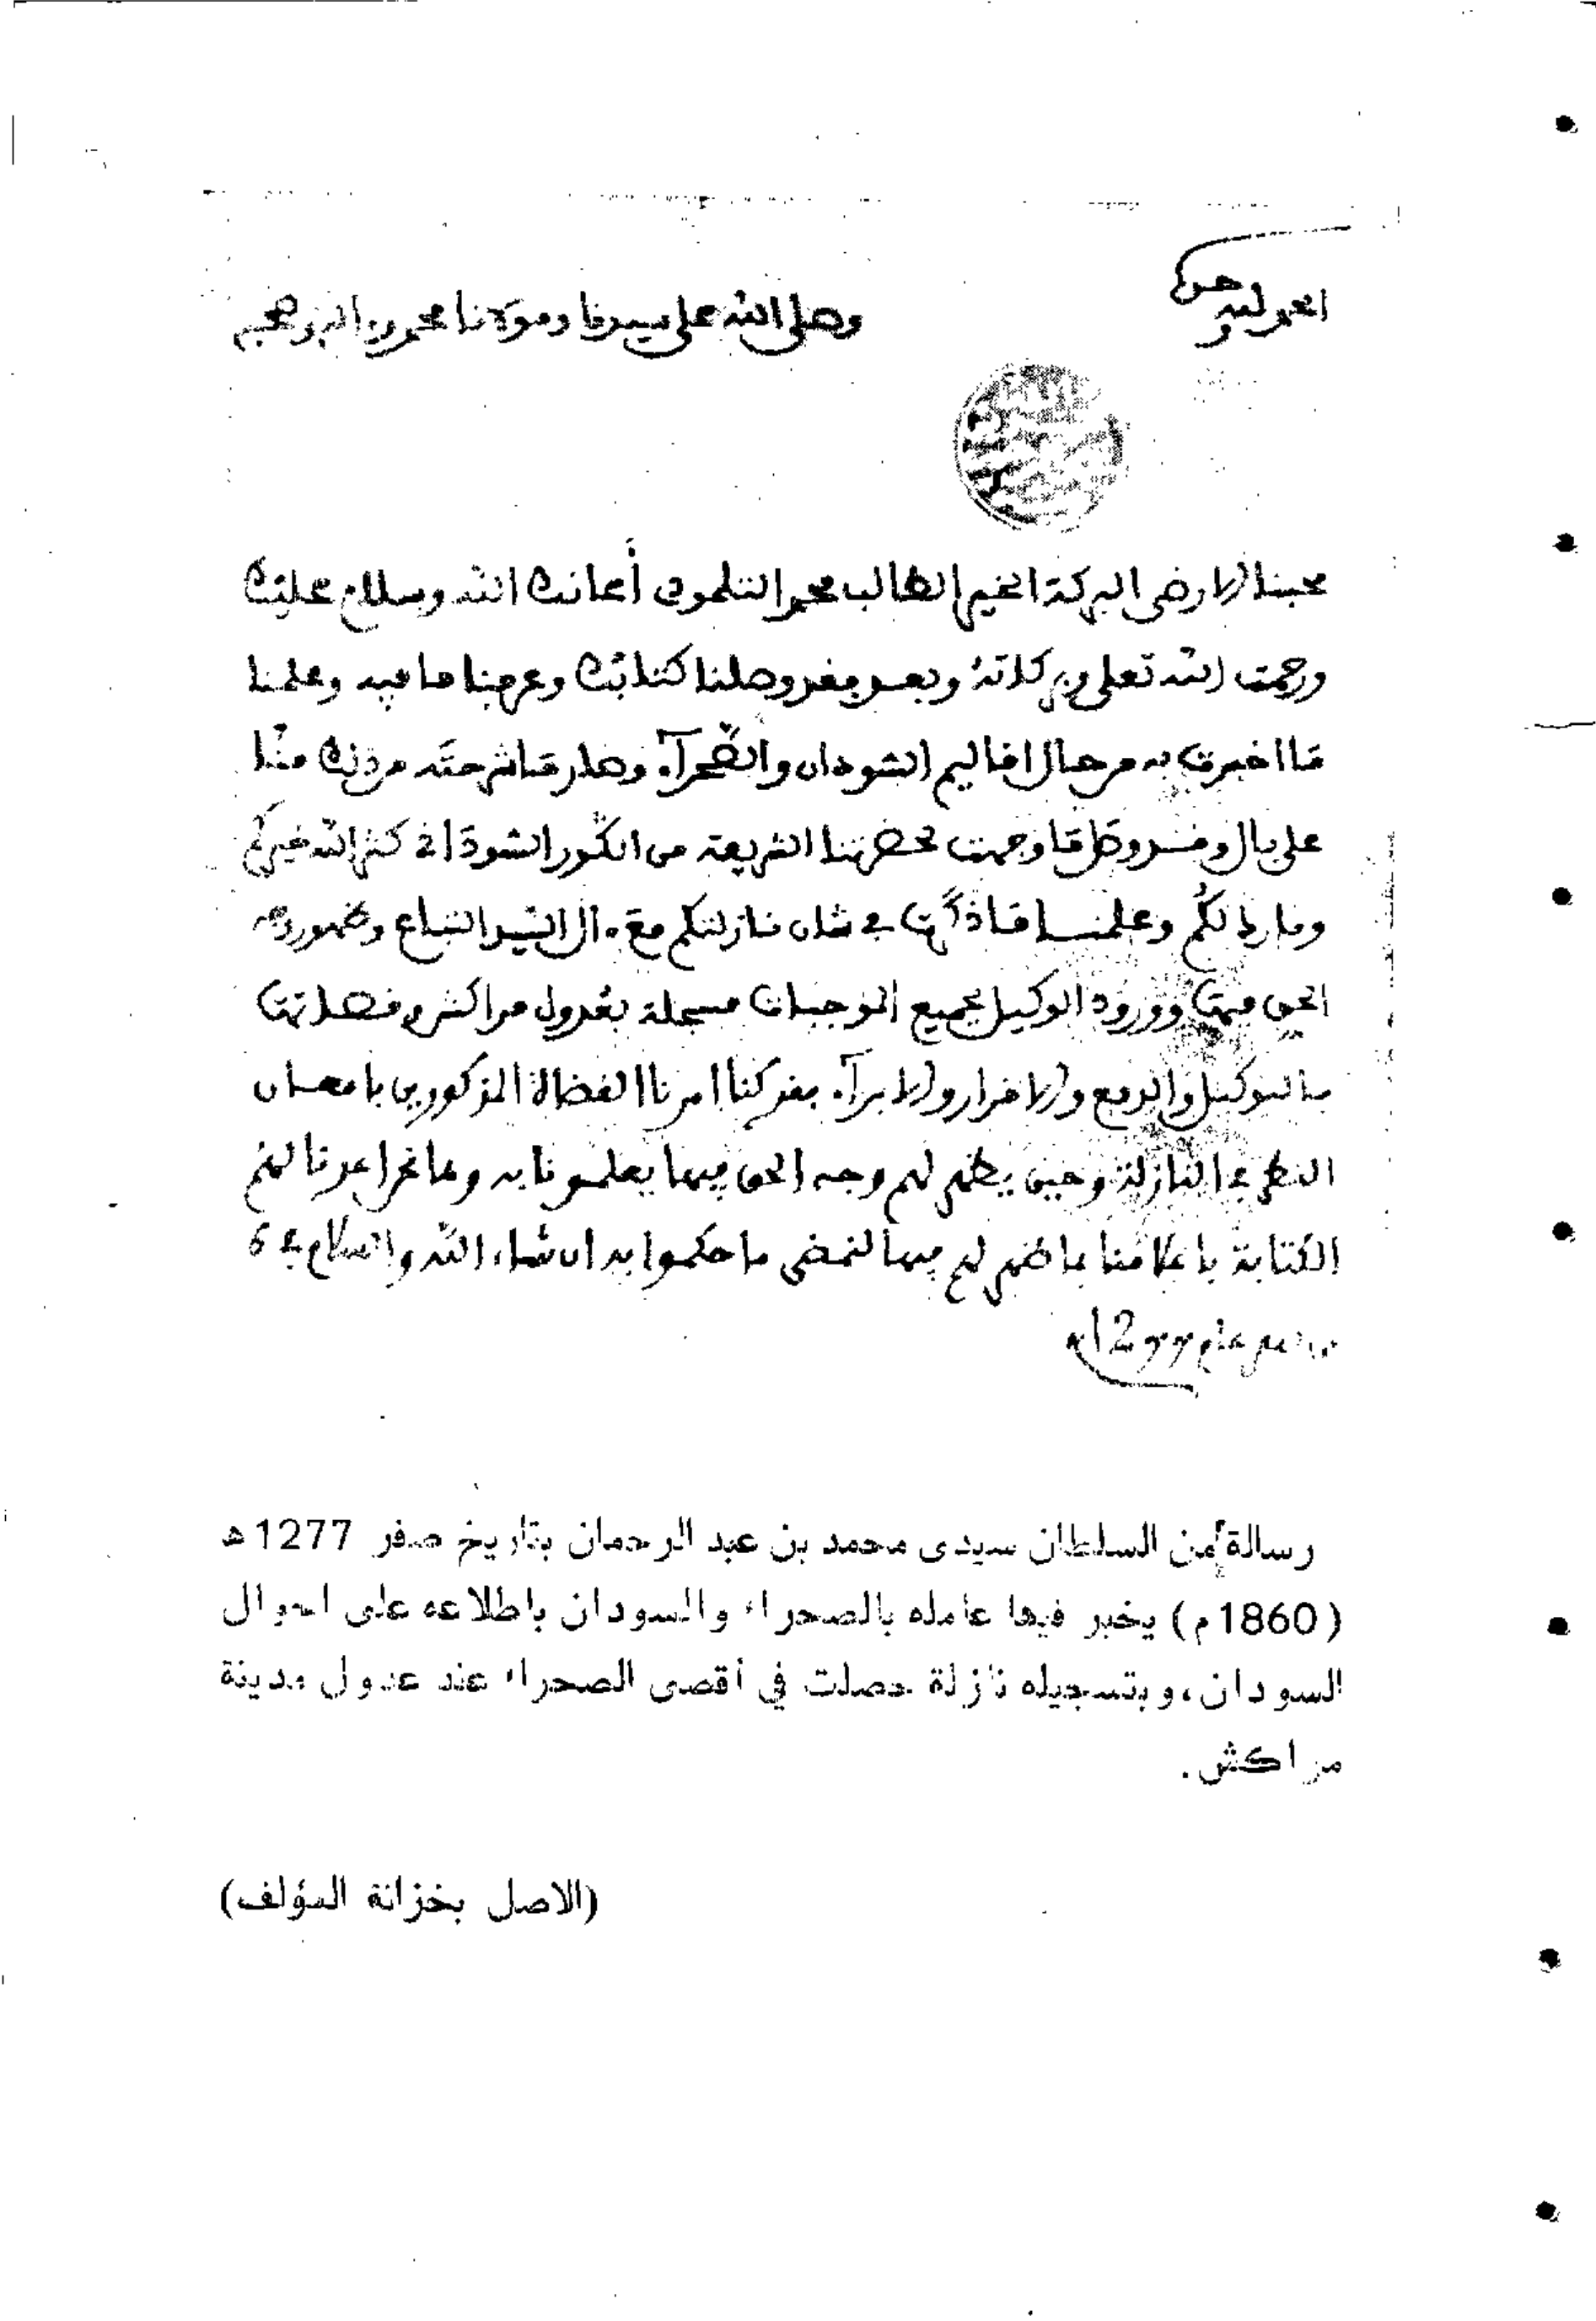 الحمد لله وحده
وصلى الله على سيدنا ومولانا محمد وءاله وصحبه
محبنا الارضى البركة الخير الطالب محمد أعانك الله وسلام عليك
ورحمت الله تعلى وبركاته وبعد فقد وصلنا كتابك وعرفنا ما فيه وعلمنا
ما اخبرت به من حال اقاليم السودان والصحرآء وصار ما شرحته من ذلك منا
على بال وقد وصل ما وجهت لحضرتنا الشريفة من السودا كثر الله خيركم
وبارك لكم وعلمنا ما ذكرت في شان نازلتكم مع ءال السباع وظهور وجه
الحق فيها وورود الوكيل بجميع الموجبات مسجلة بعدول مراكش وقضاتها
بالتوكيل والدفع والاقرار والابرآء فقد كنا امرنا القضاة المذكورين بامعان
النظر في النازلة وحين يظهر لهم وجه الحق فيها يعلموننا به وها نحن اعدنا لهم
الكتابة باعلامنا بما ظهر لهم فيها لنمضي ما حكموا به ان شاء الله والسلام في 6
صفر عام 1277
رسالة من السلطان سيدى محمد بن عبد الرحمان بتاريخ صفر 1277 هـ
(1860 م) يخبر فيها عامله بالصحراء والسودان باطلاعه على احوال
السودان، وبتسجيله نازلة حصلت في أقصى الصحراء عند عدول مدينة
مراكش.
(الاصل بخزانة المؤلف)